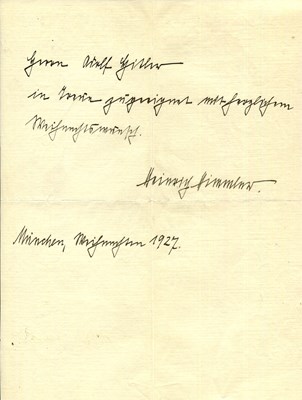 Herrn Adolf Hitler
in Treue zugeeignet mit herzlichem
Weihnachtswunsch.
Heinrich Himmler.
München, Weihnachten 1927.